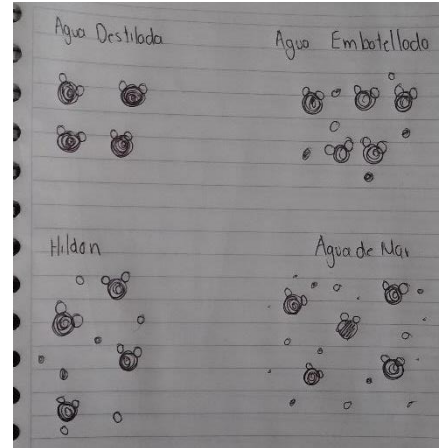 Agua Destilada
Agua Embotellada
Hildan
Agua de Mar